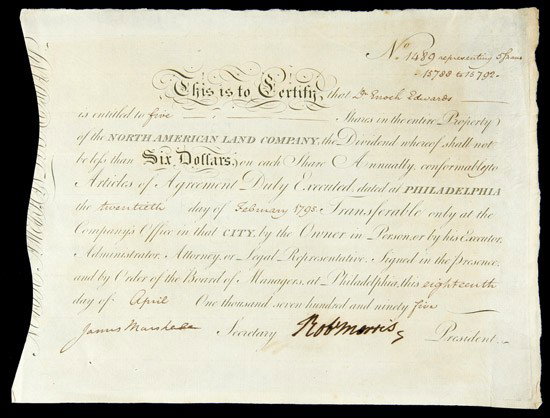 No. 1489 representing Shares
15788 to 15792.
This is to Certify, that Dr. Enoch Edwards
is entitled to five Shares in the entire Property
of the NORTH AMERICAN LAND COMPANY, the Dividend whereof shall not
be less than Six Dollars, on each Share Annually, conformably to
Articles of Agreement Duly Executed, dated at PHILADELPHIA
the twentieth day of February 1795 Transferable only at the
Company's Office in that CITY, by the Owner in Person, or by his Executor,
Administrator, Attorney, or Legal Representative. Signed in the Presence,
and by Order of the Board of Managers, at Philadelphia, this eighteenth
day of April One thousand seven hundred and ninety five
James Marshall Secretary Robt Morris President.